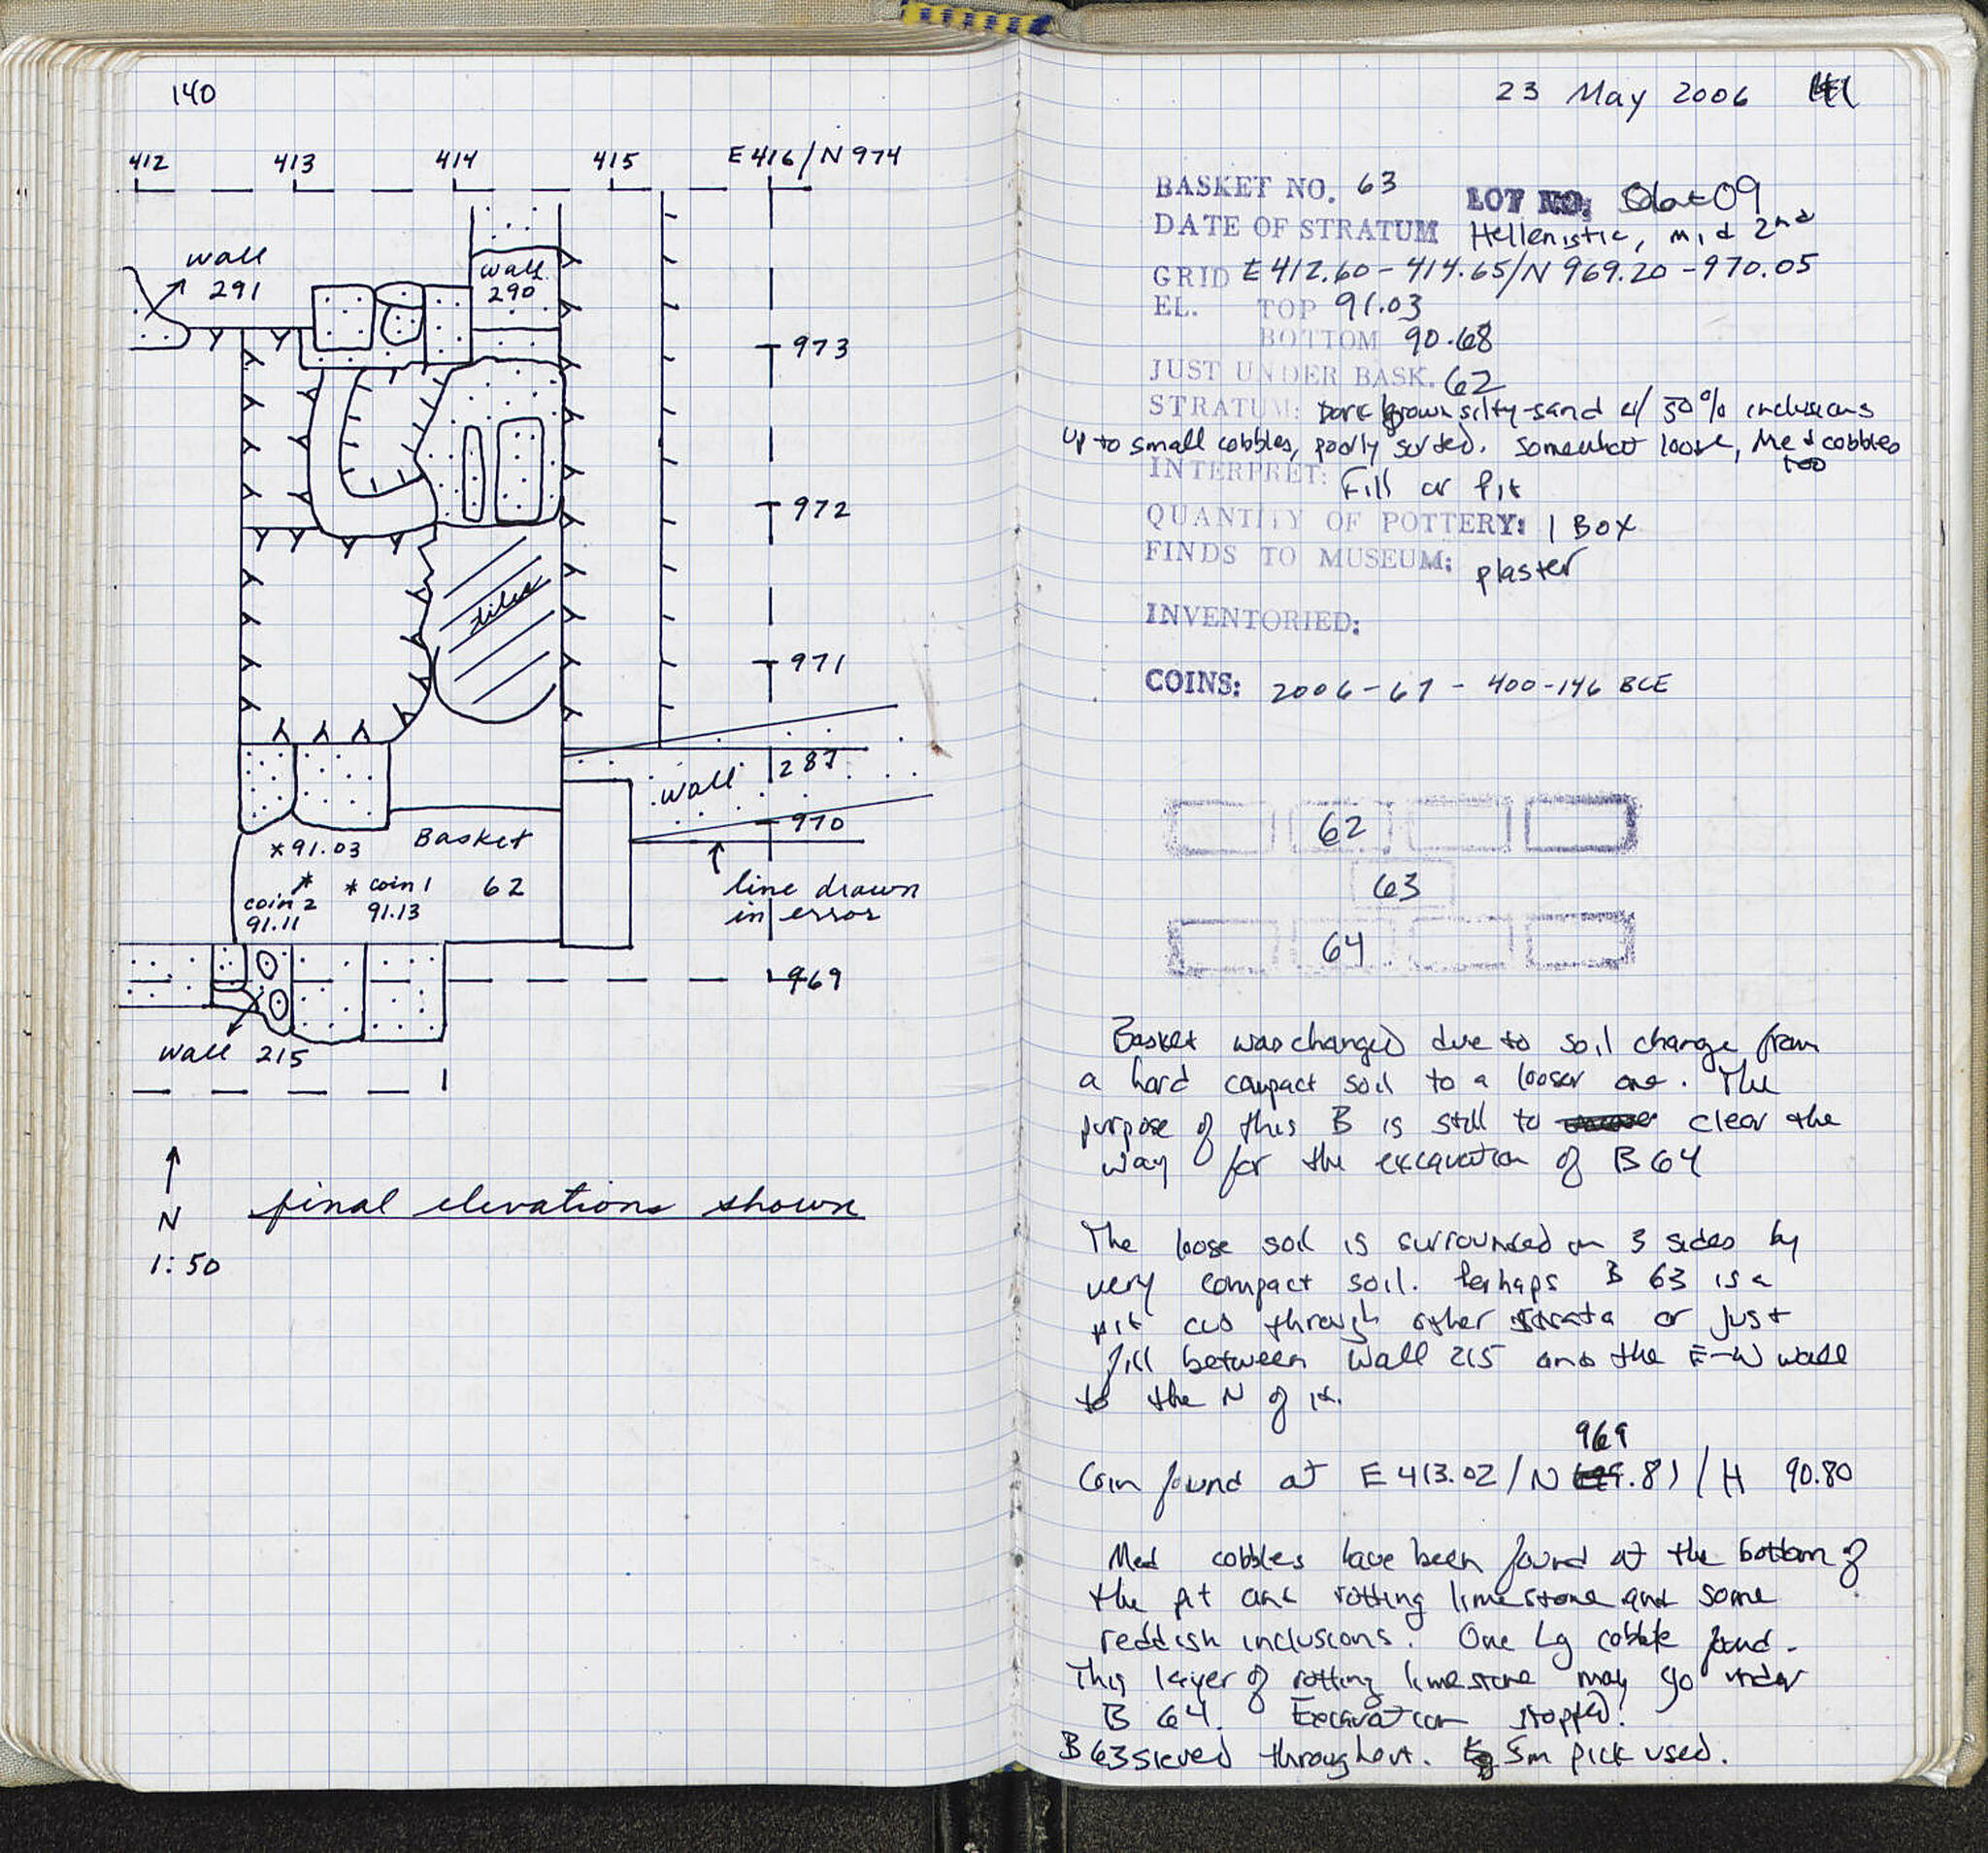 140
412 413 414 415 E 416/N 974
wall
291
wall
290
973
972
tiles
971
wall 287
970
*91.03 Basket
* * coin 1 62
coin 2 91.13
91.11
line drawn
in error
969
wall 215
N
final elevations shown
1:50
23 May 2006 141
BASKET NO. 63 LOT NO.
DATE OF STRATUM Hellenistic, mid 2nd
GRID E 412.60 - 414.65/N 969.20 - 970.05
EL. TOP 91.03
BOTTOM 90.68
JUST UNDER BASK. 62
STRATUM: Dark brown silty-sand w/ 50% inclusions
up to small cobbles, poorly sorted. Somewhat loose, Med cobbles
too
INTERPRET: Fill or Pit
QUANTITY OF POTTERY: 1 Box
FINDS TO MUSEUM: plaster
INVENTORIED:
COINS: 2006-67 - 400-146 BCE
62
63
64
Basket was changed due to soil change from
a hard compact soil to a looser one. The
purpose of this B is still to clear the
way for the excavation of B 64
The loose soil is surrounded on 3 sides by
very compact soil. Perhaps B 63 is a
pit cut through other strata or just
fill between Wall 215 and the E-W wall
to the N of it.
969
Coin found at E 413.02/N .81/H 90.80
Med cobbles have been found at the bottom of
the pit and rotting limestone and some
reddish inclusions. One Lg cobble found.
This layer of rotting limestone may go under
B 64. Excavation stopped.
B 63 sieved throughout. Sm pick used.